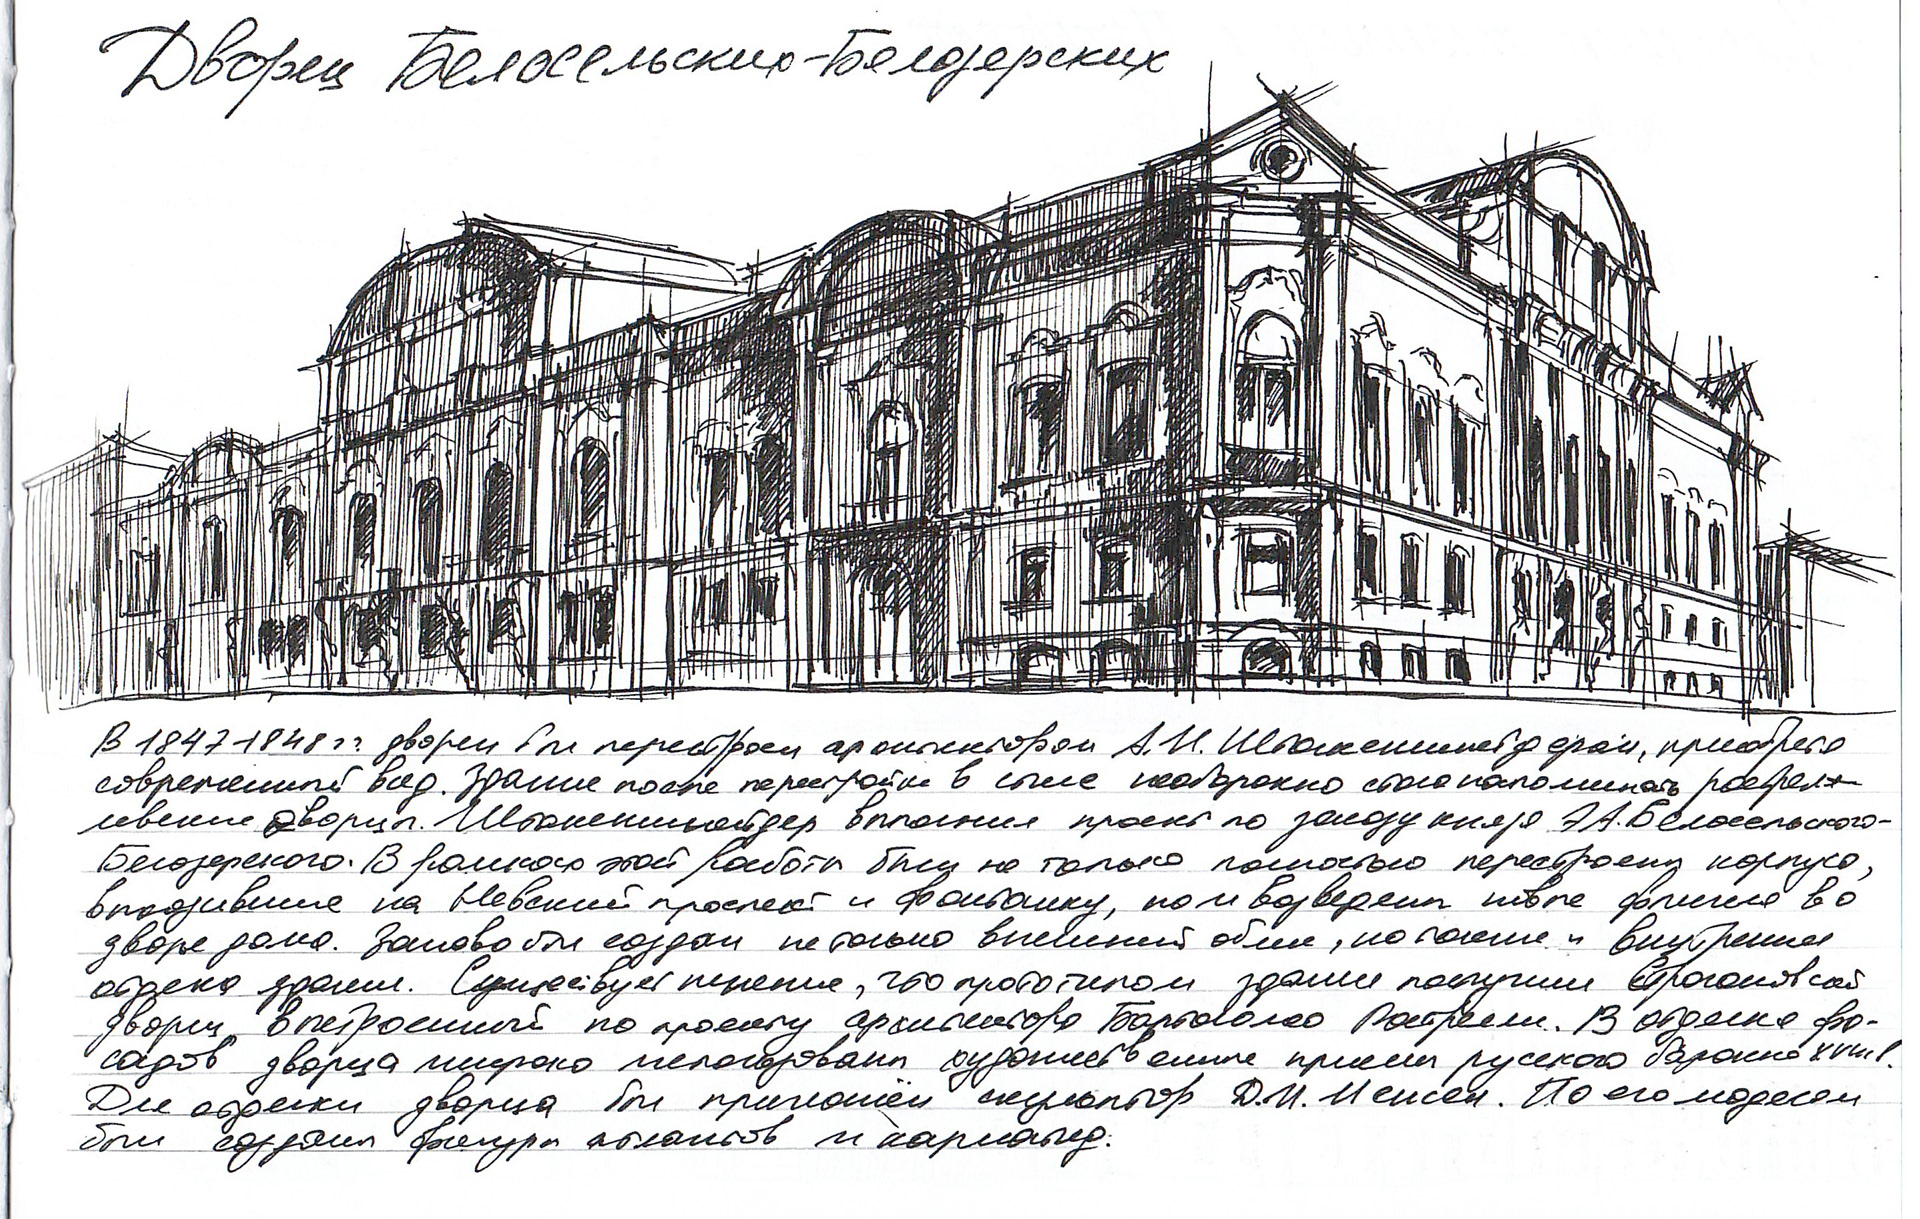 Дворец Белосельских-Белозерских
В 1847-1848 гг. дворец был перестроен архитектором А.И. Штакеншнейдером, приобретя
современный вид. Здание после перестройки в стиле необарокко стало напоминать растрел-
лиевские дворцы. Штакеншнейдер выполнил проект по заказу князя Э.А. Белосельского-
Белозерского. В рамках этой работы были не только полностью перестроены корпуса,
выходившие на Невский проспект и Фонтанку, но и возведены новые флигели во
дворе дома. Заново был создан не только внешний облик, но также и внутренняя
отделка здания. Существует мнение, что прототипом здания послужил Строгановский
дворец, выстроенный по проекту архитектора Бартоломео Растрелли. В отделке фа-
садов дворца широко использованы художественные приемы русского барокко XVIII в.
Для отделки дворца был приглашён скульптор Д.И. Иенсен. По его моделям
были созданы фигуры атлантов и кариатид.